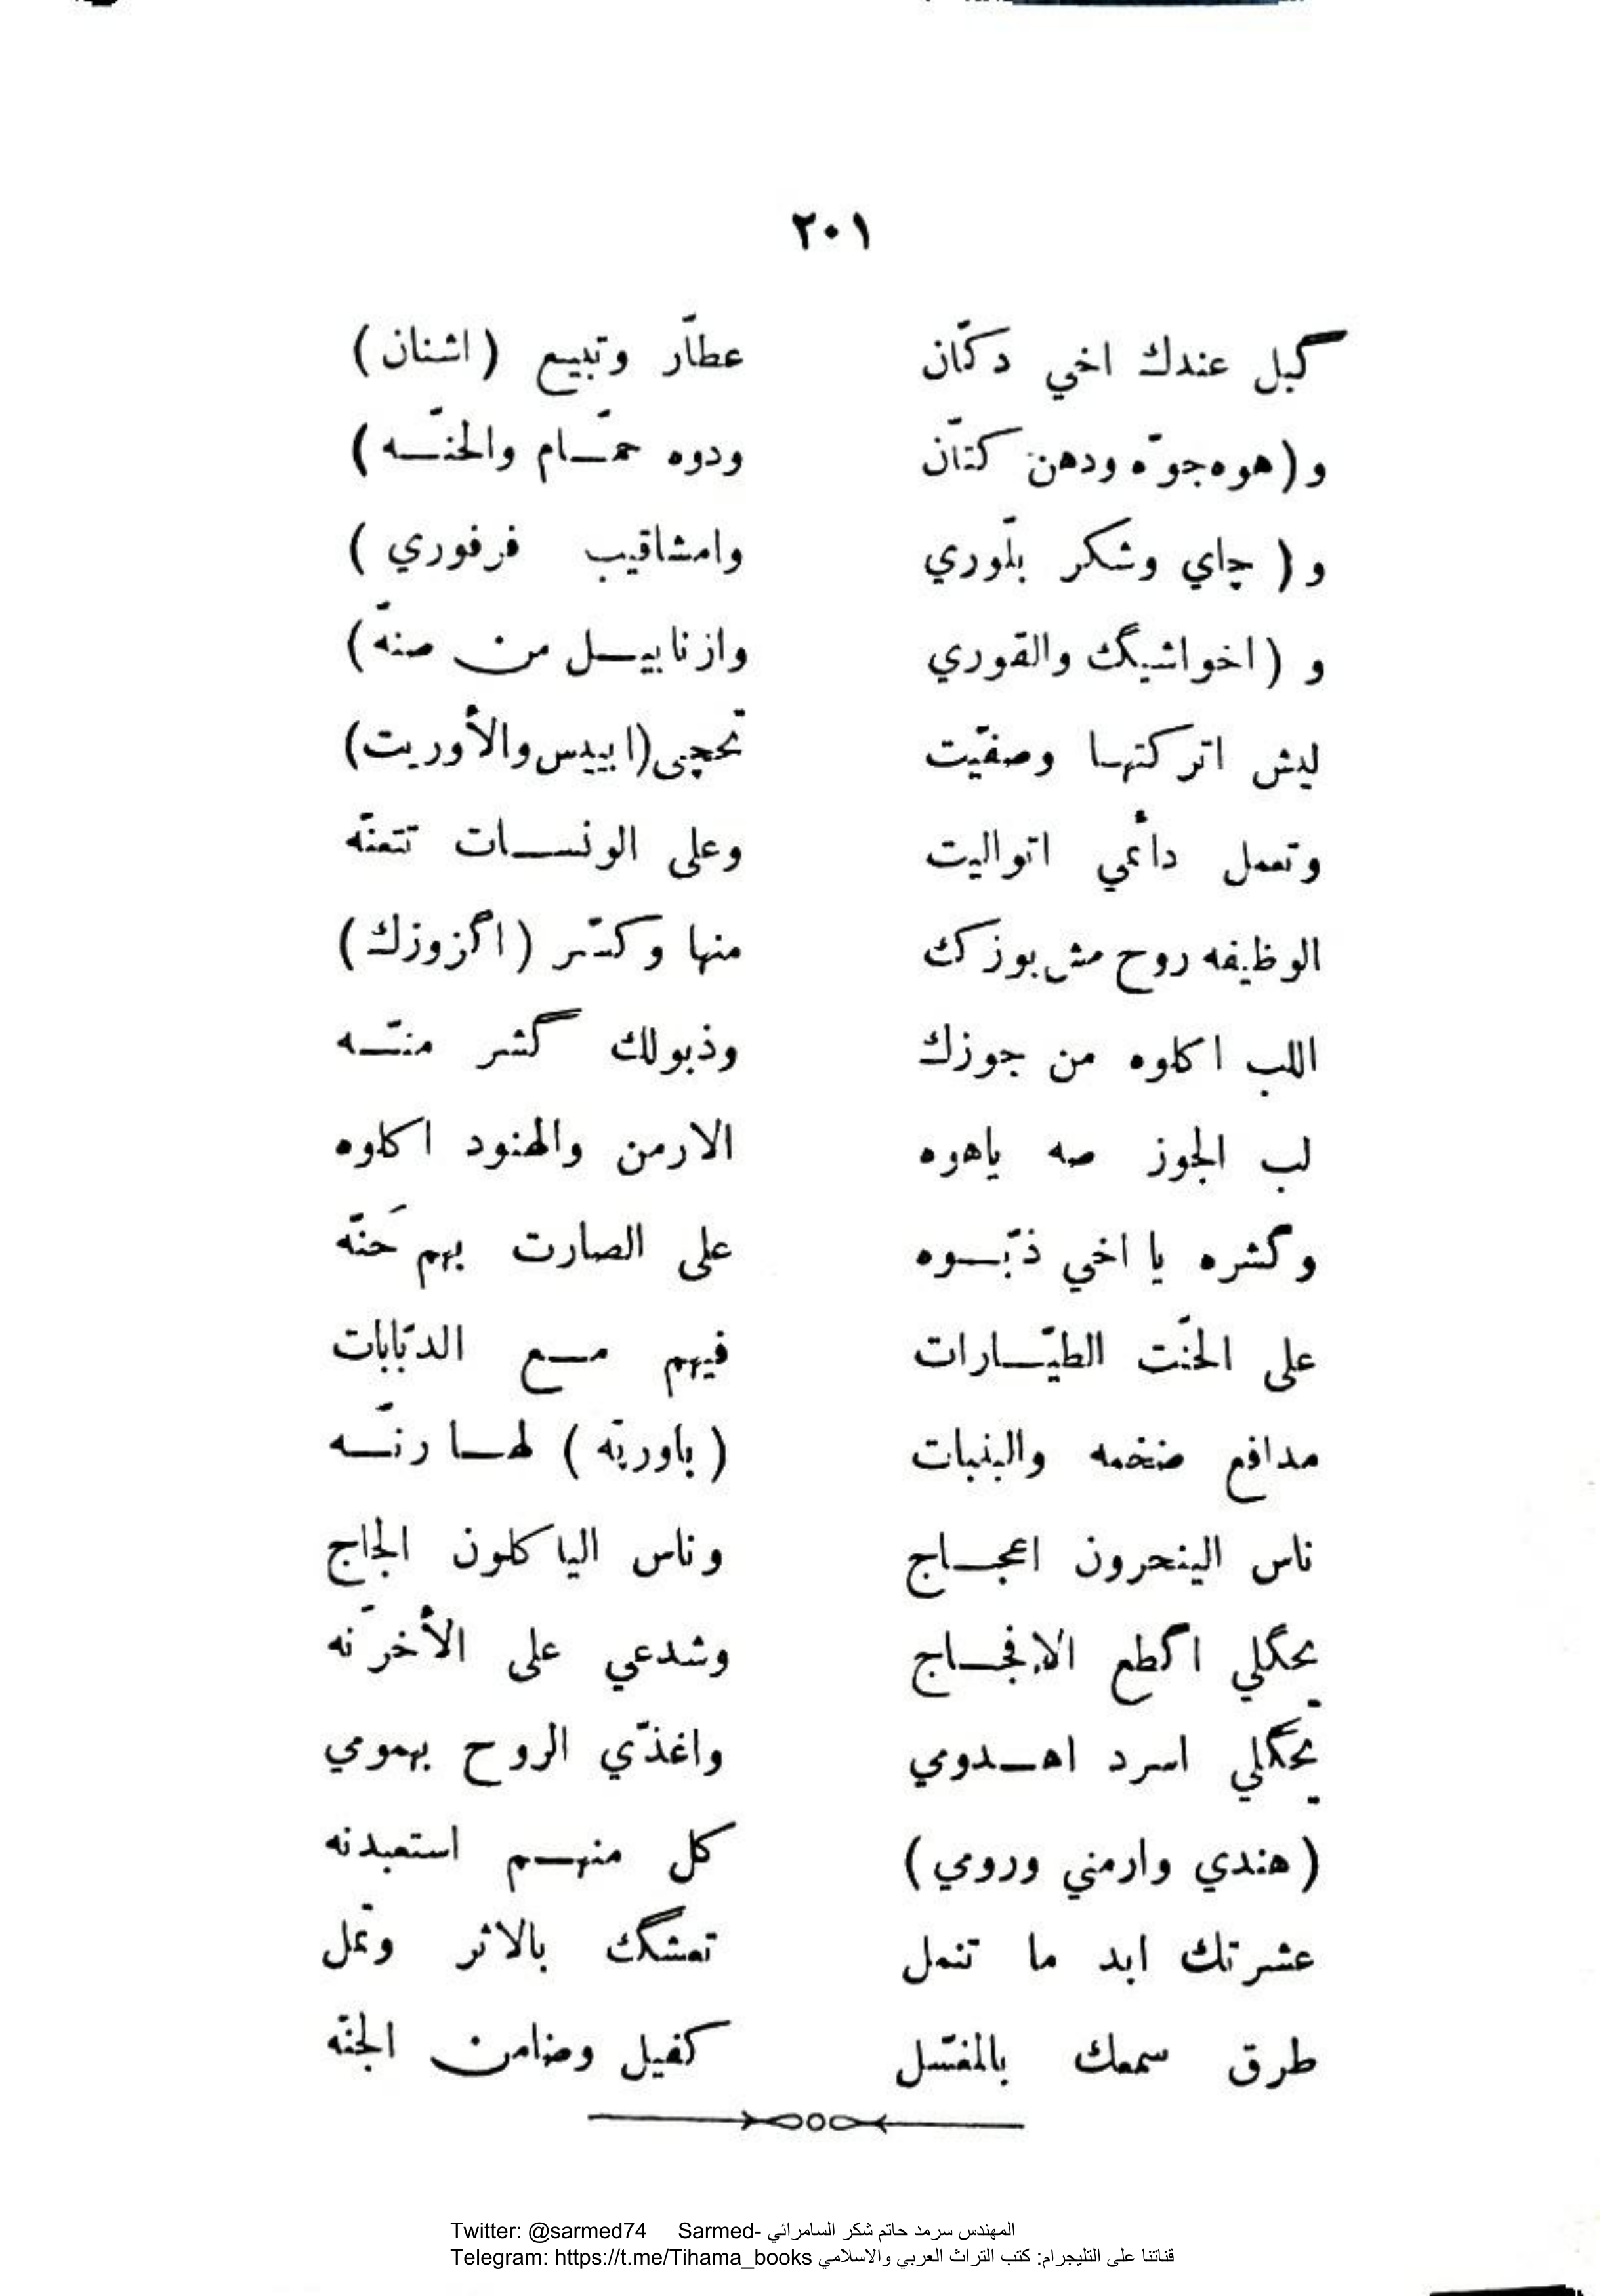 ٢٠١
گبل عندك اخي دكّان عطاّر وتبيع (اشنان)
و(هوه جوّه ودهن كتاّن ودوه حمّـام والحنّـه)
و( چاي وشكر بلّوري وامشاقيب فرفوري )
و (اخواشيگ والقوري وازنابيـل من صنهّ)
ليش اتركتهـا وصفيّت تحچي(ابيدس والأوريت)
وتعمل دائمي اتواليت وعلى الونسـات تتعنّه
الوظيفه روح مش بوزك منها وكسّر (اگزوزك)
اللب اكلوه من جوزك وذبولك گشر منّـه
لب الجوز صه ياهوه الارمن والهنود اكلوه
وگشره يا اخي ذبّـوه على الصارت بهم حَنّه
على الحنّت الطيّـارات فيهم مـع الدبّابات
مدافع ضخمه والبنبات (باوريّه) لهـا رنّـه
ناس الينحرون اعجـاج وناس الياكلون الجاج
يحگلي اگطع الافجـاج وشدعي على الأخرّنه
يحگلي اسرد اهـدومي واغذّي الروح بهمومي
(هندي وارمني ورومي) كل منهـم استعبدنه
عشرتك ابد ما تنمل تعشگك بالاثر وتمل
طرق سمعك بالمغسّل كفيل وضامن الجنّه
Twitter: @sarmed74 Sarmed- المهندس سرمد حاتم شكر السامرائي
Telegram: https://t.me/Tihama_books قناتنا على التليجرام: كتب التراث العربي والاسلامي